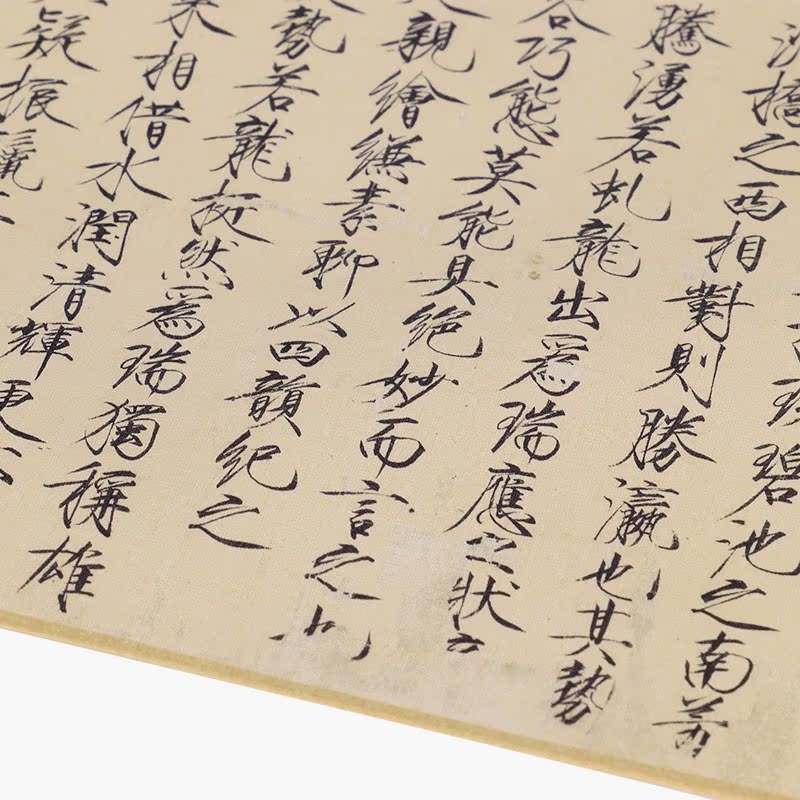 環碧池之南芳
洲橋之西相對則勝瀛也其勢
騰湧若虬龍出爲瑞應之狀奇
容巧態莫能具絶妙而言之也
親繪縑素聊以四韻紀之
勢若龍挺然爲瑞獨稱雄
來相借水潤清輝更不
疑振鬣